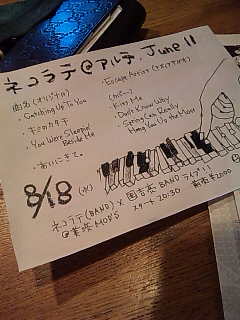 ネコラテ@アルテ, June 11
曲名(オリジナル)
・Catching Up To You
・キミのカタチ
・You Were Sleepin'
Beside Me
・あいにきて。
・Escape Artist
(カバー)
・Kiss Me
・Don't Know Why
・Spring Can Really
Hang You Up The Most
8/18 (水)
ネコラテ(BAND) ×
BAND ライブ!!
スタート 20:30